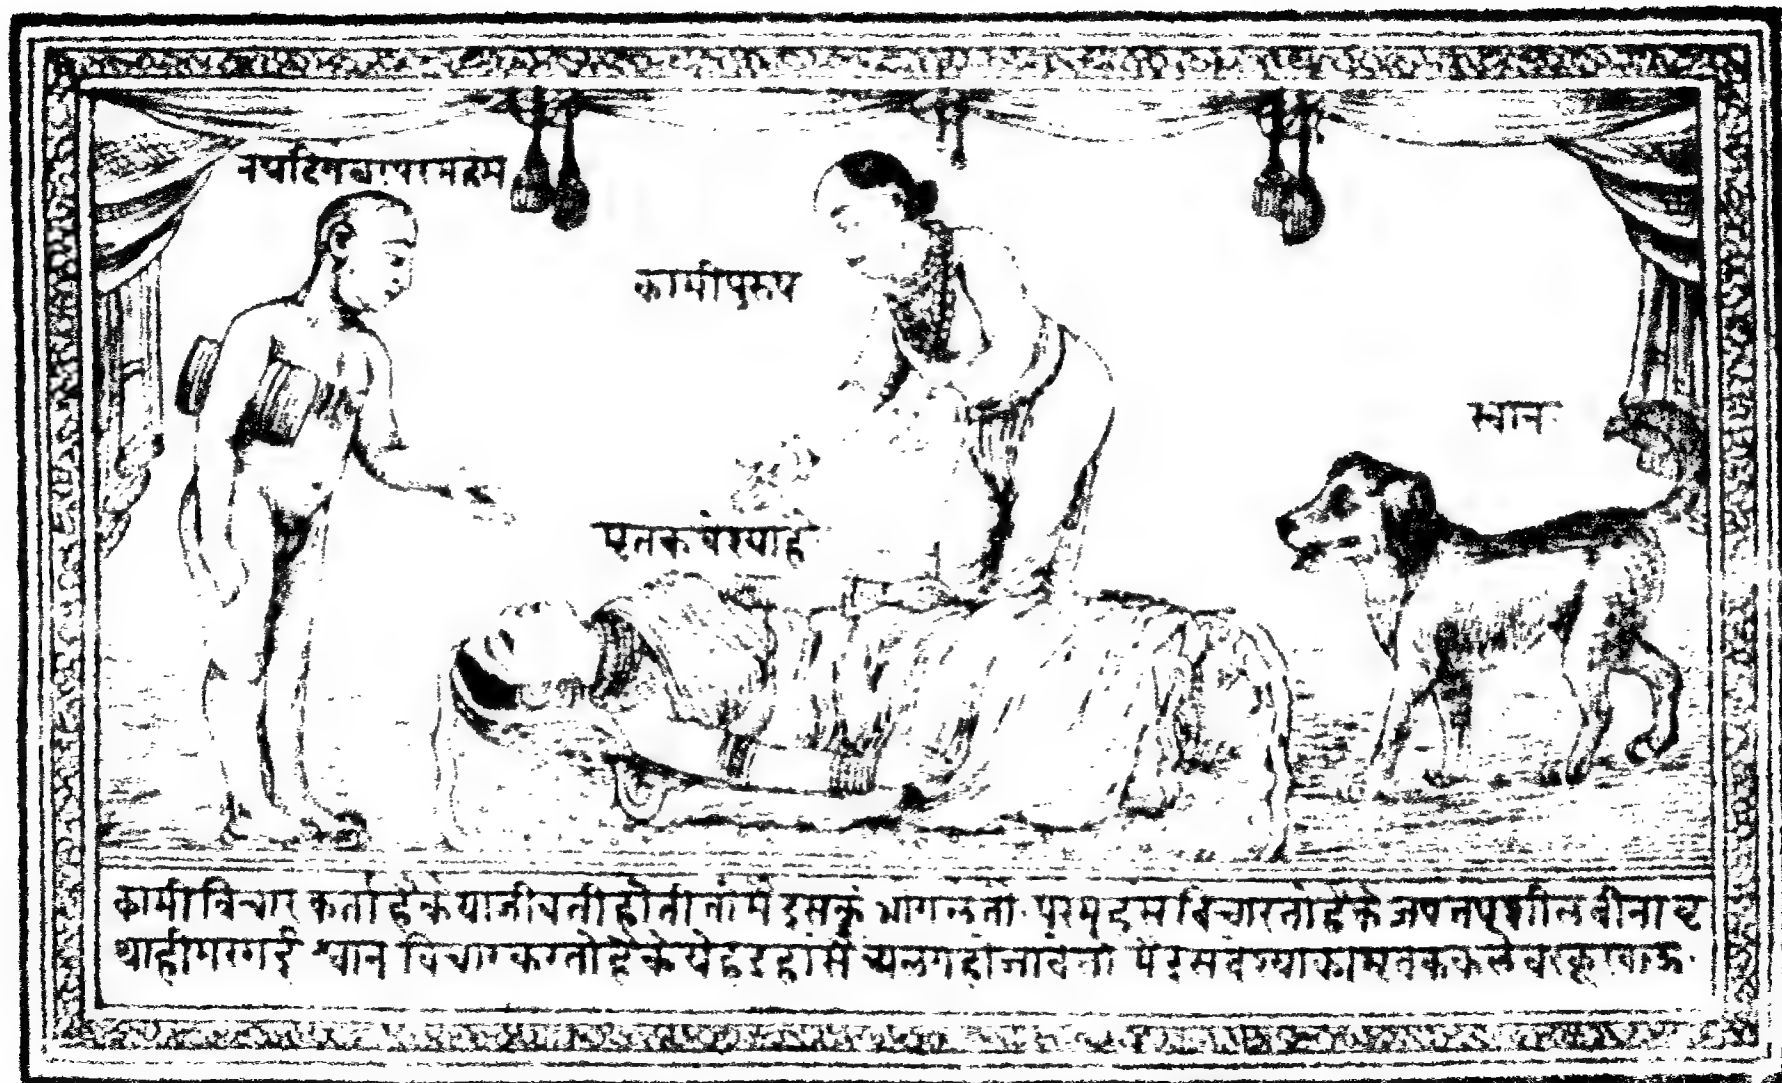 कामीपुरुष
स्वान
मृतक वेस्याहे
कामी विचार कर्ता है के या जीवती होती तो मैं इसकूं भोगलेतो परमहंस विचारतो है के जप तप शील वीना
थाही मरगई श्वान विचार करतो है के येह इहां सें अलग हो जावे तो में इस वेश्या का मृतक कलेवर कू खाऊ